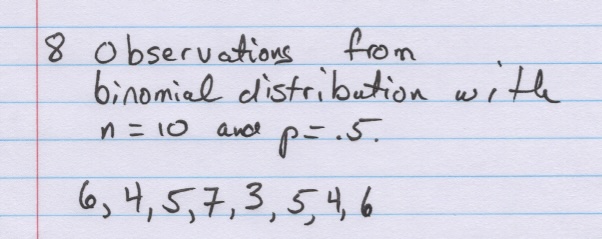 8 observations from
binomial distribution with
n = 10 and p = .5.
6, 4, 5, 7, 3, 5, 4, 6